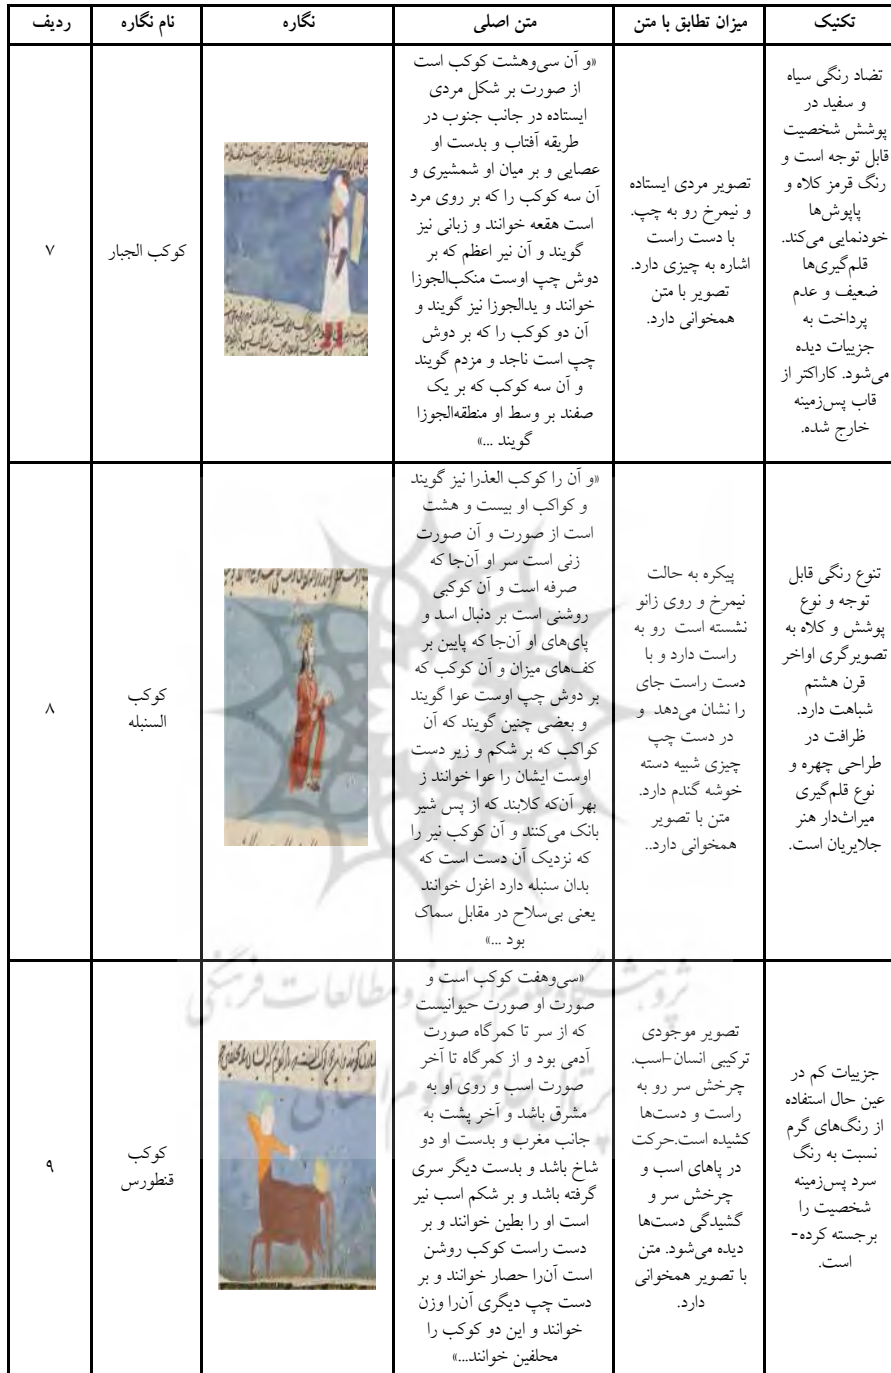 ردیف
نام نگاره
نگاره
متن اصلی
میزان تطابق با متن
تکنیک
۷
کوکب الجبار
«و آن سی‌وهشت کوکب است
از صورت بر شکل مردی
ایستاده در جانب جنوب در
طریقه آفتاب و بدست او
عصایی و بر میان او شمشیری و
آن سه کوکب را که بر روی مرد
است هقعه خوانند و زبانی نیز
گویند و آن نیر اعظم که بر
دوش چپ اوست منکب‌الجوزا
خوانند و یدالجوزا نیز گویند و
آن دو کوکب را که بر دوش
چپ است ناجد و مزدم گویند
و آن سه کوکب که بر یک
صفند بر وسط او منطقه‌الجوزا
گویند ...»
تصویر مردی ایستاده
و نیمرخ رو به چپ.
با دست راست
اشاره به چیزی دارد.
تصویر با متن
همخوانی دارد.
تضاد رنگی سیاه
و سفید در
پوشش شخصیت
قابل توجه است و
رنگ قرمز کلاه و
پاپوش‌ها
خودنمایی می‌کند.
قلم‌گیری‌ها
ضعیف و عدم
پرداخت به
جزییات دیده
می‌شود. کاراکتر از
قاب پس‌زمینه
خارج شده.
۸
کوکب
السنبله
«و آن را کوکب العذرا نیز گویند
و کواکب او بیست و هشت
است از صورت و آن صورت
زنی است سر او آن‌جا که
صرفه است و آن کوکبی
روشنی است بر دنبال اسد و
پای‌های او آن‌جا که پایین بر
کف‌های میزان و آن کوکب که
بر دوش چپ اوست عوا گویند
و بعضی چنین گویند که آن
کواکب که بر شکم و زیر دست
اوست ایشان را عوا خوانند ز
بهر آن‌که کلابند که از پس شیر
بانک می‌کنند و آن کوکب نیر را
که نزدیک آن دست است که
بدان سنبله دارد اغزل خوانند
یعنی بی‌سلاح در مقابل سماک
بود ...»
پیکره به حالت
نیمرخ و روی زانو
نشسته است رو به
راست دارد و با
دست راست جای
را نشان می‌دهد و
در دست چپ
چیزی شبیه دسته
خوشه گندم دارد.
متن با تصویر
همخوانی دارد..
تنوع رنگی قابل
توجه و نوع
پوشش و کلاه به
تصویرگری اواخر
قرن هشتم
شباهت دارد.
ظرافت در
طراحی چهره و
نوع قلم‌گیری
میراث‌دار هنر
جلایریان است.
۹
کوکب
قنطورس
«سی‌وهفت کوکب است و
صورت او صورت حیوانیست
که از سر تا کمرگاه صورت
آدمی بود و از کمرگاه تا آخر
صورت اسب و روی او به
مشرق باشد و آخر پشت به
جانب مغرب و بدست او دو
شاخ باشد و بدست دیگر سری
گرفته باشد و بر شکم اسب نیر
است او را بطین خوانند و بر
دست راست کوکب روشن
است آن‌را حصار خوانند و بر
دست چپ دیگری آن‌را وزن
خوانند و این دو کوکب را
محلفین خوانند...»
تصویر موجودی
ترکیبی انسان-اسب.
چرخش سر رو به
راست و دست‌ها
کشیده است.حرکت
در پاهای اسب و
چرخش سر و
گشیدگی دست‌ها
دیده می‌شود. متن
با تصویر همخوانی
دارد.
جزییات کم در
عین حال استفاده
از رنگ‌های گرم
نسبت به رنگ
سرد پس‌زمینه
شخصیت را
برجسته کرده-
است.
پژوهشگاه علوم انسانی و مطالعات فرهنگی
پرتال جامع علوم انسانی